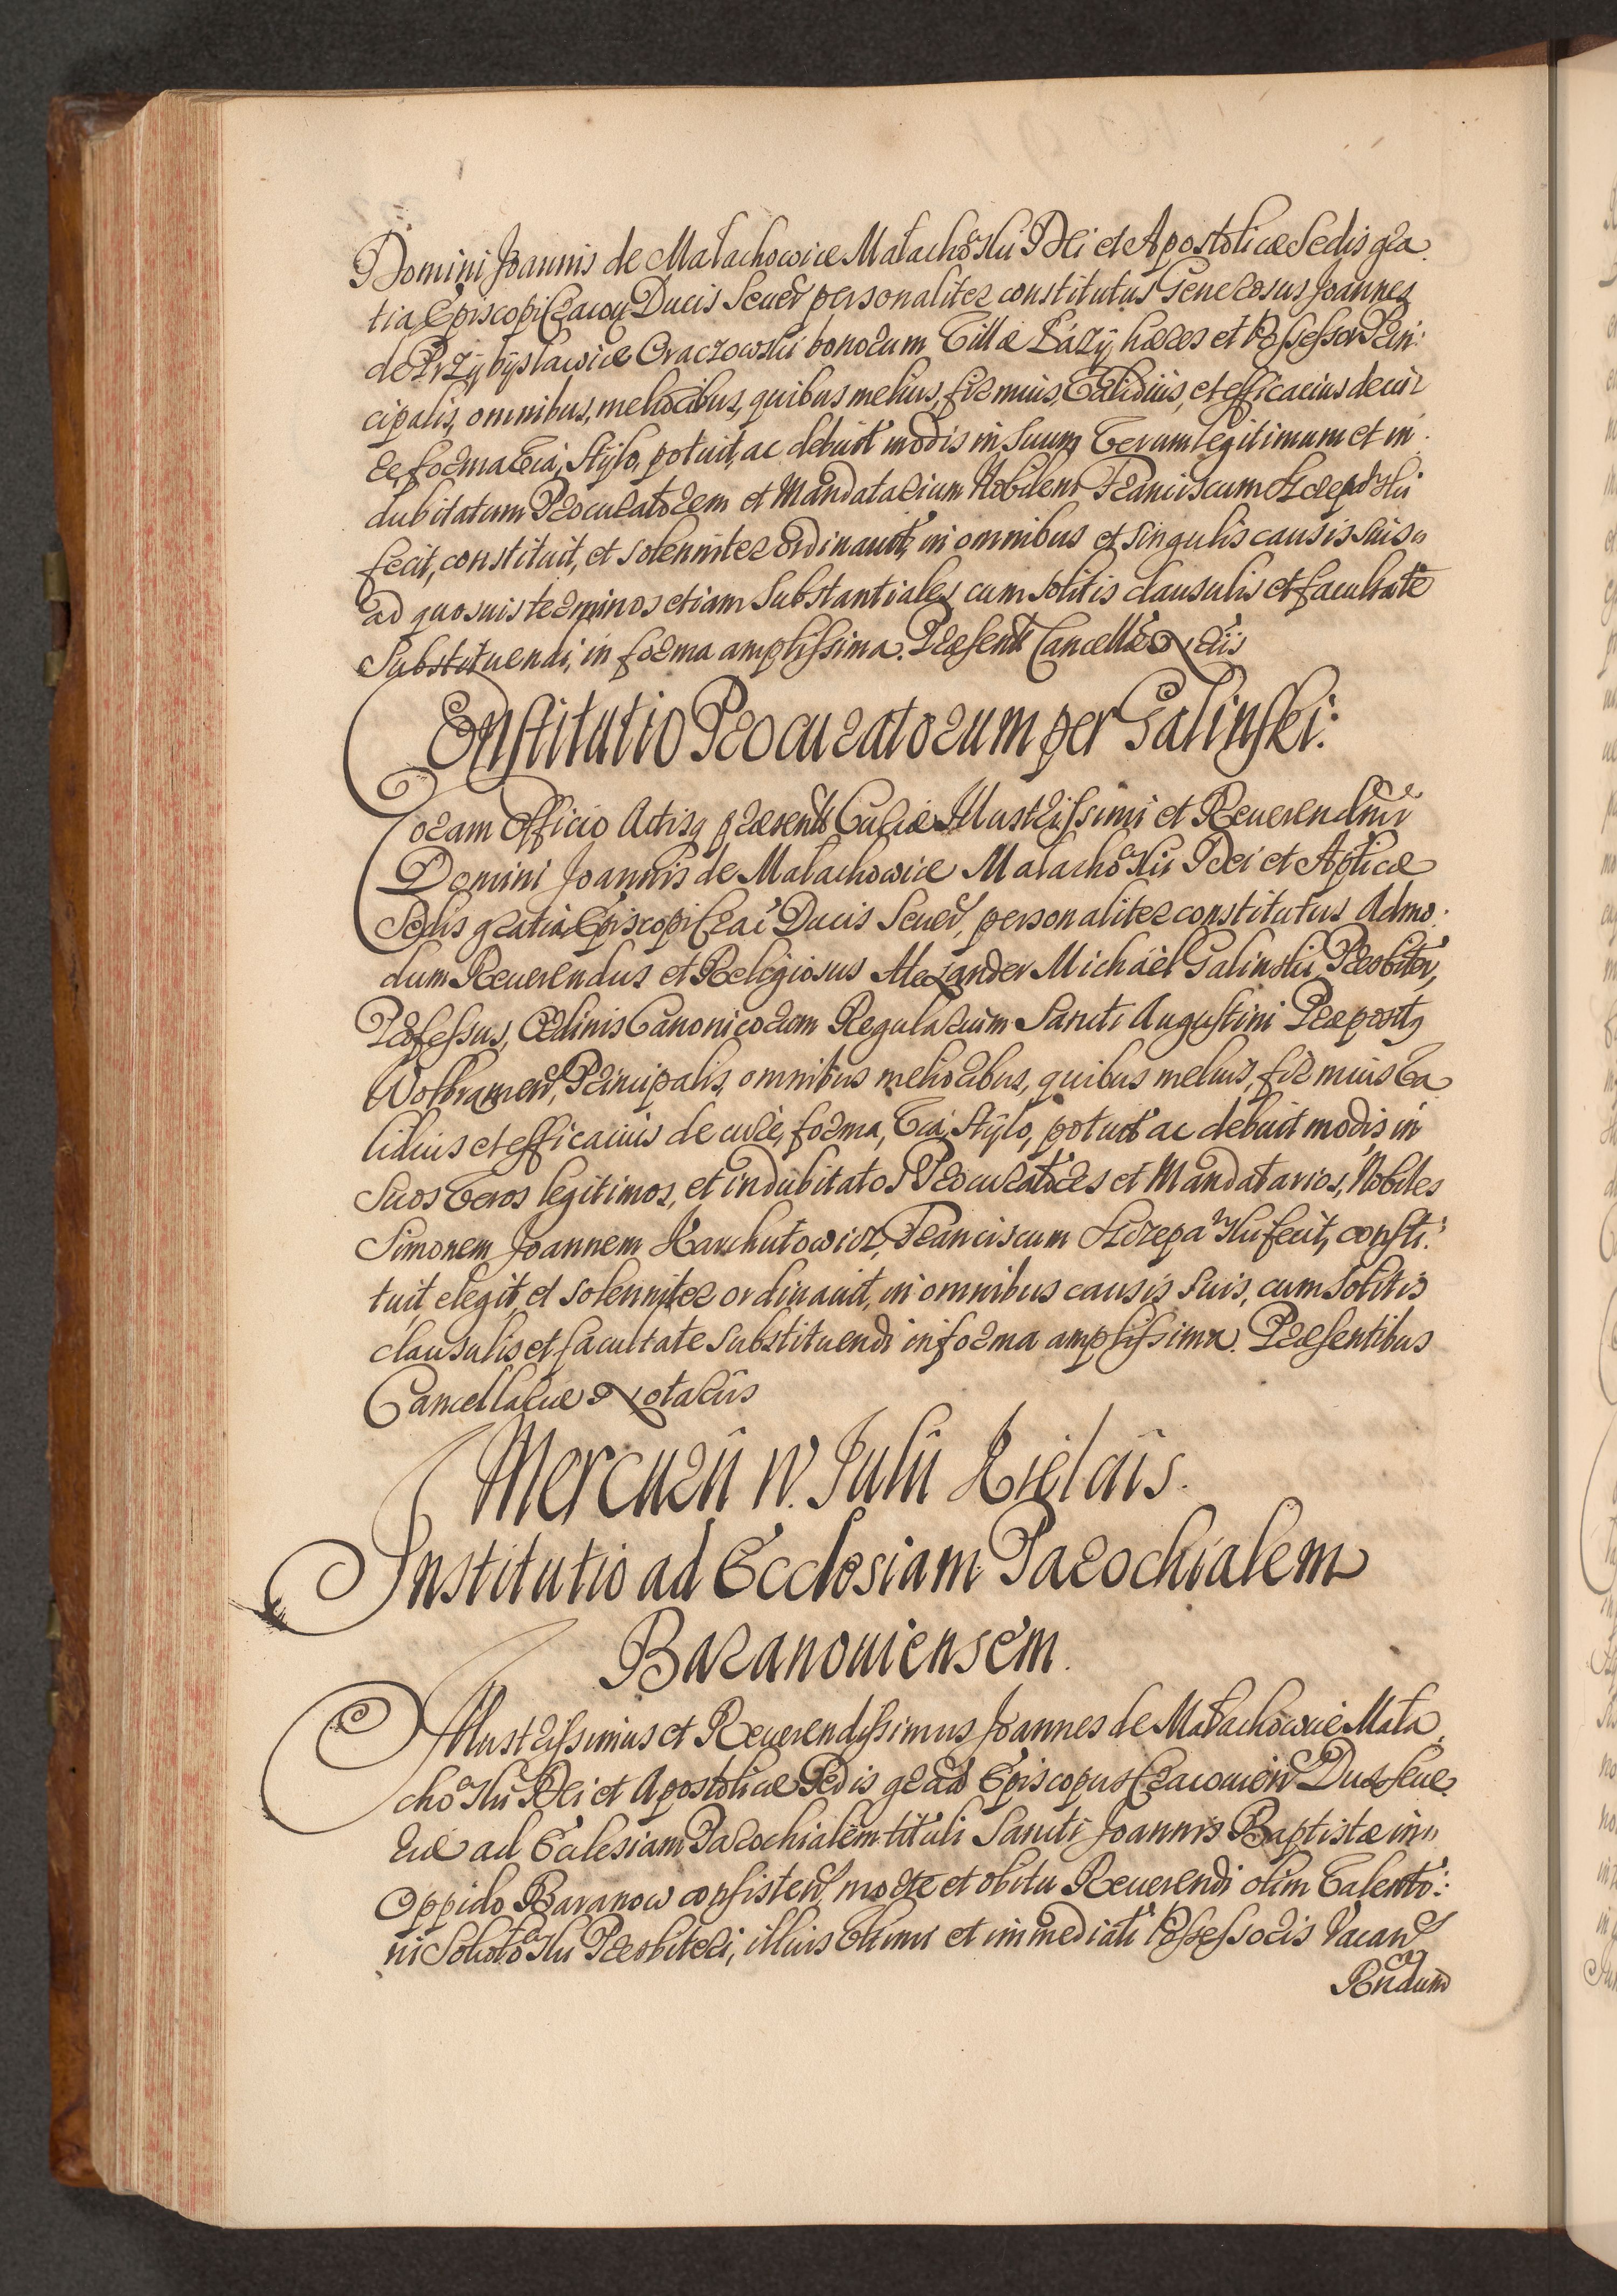 Domini Joannis de Małachowice Małachowski Dei et Apostolicæ Sedis gra
tia Episcopi Cracou Ducis Seuer personaliter constitutus Generosus Joannes
de Przÿbÿsławice Oraczowski bonorum Villæ Łazÿ hæres et Possessor Prin:
cipalis, omnibus, melioribus, quibus melius, firmius, Validius, et efficacius de iu
re, forma Via, Stÿlo, potuit, ac debuit modis in Suum Verum legitimum et in
dubitatum Procuratorem et Mandatarium Nobilem Franciscum
fecit, constituit, et solenniter ordinauit, in omnibus et Singulis causis suis
ad quosuis terminos etiam Substantiales cum solitis clausulis et facultate
Substituendi, in forma amplissima. Præsent Cancell
Constitutio Procuratorum per Galinski:
Coram Officio Actisq præsent Curiæ Illustrissimi et Reuerendmi
Domini Joannis de Małachowice Małachowski Dei et Aplicæ
Sedis gratia Episcopi Crac Ducis Seuer, personaliter constitutus Admo
dum Reuerendus et Religiosus Alexander Michaël Galinski Præsbiter,
Professus, Ordinis Canonicorum Regularium Sancti Augustini Præposit9
Wolbramen, Principalis, omnibus melioribus, quibus melius, firmius Va
lidius et efficacius de iure, forma, Via, Stÿlo, potuit ac debuit modis, in
Suos Veros legitimos, et indubitatos Procuratores et Mandatarios, Nobiles
Simonem Joannem Karchutowicz, Franciscum fecit, consti:
tuit, elegit, et solenniter ordinauit, in omnibus causis suis, cum solitis
clausulis, et facultate Substituendi in forma amplissima. Præsentibus
Cancellariæ Notariis
Mercurii IV. Julii Kielciis.
Institutio ad Ecclesiam Parochialem
Baranouiensem.
Illustrissimus et Reuerendissimus Joannes de Małachowice Mała
chowski Dei et Apostolicæ Sedis grad Episcopus Cracouien Dux Seue
riæ ad Ecclesiam Parochialem tituli Sancti Joannis Baptistæ in
Oppido Baranow consisten, morte et obitu Reuerendi olim Valenti:
ni Præsbiteri, illius Vltimi et immediati Possessoris Vacan
Rndum